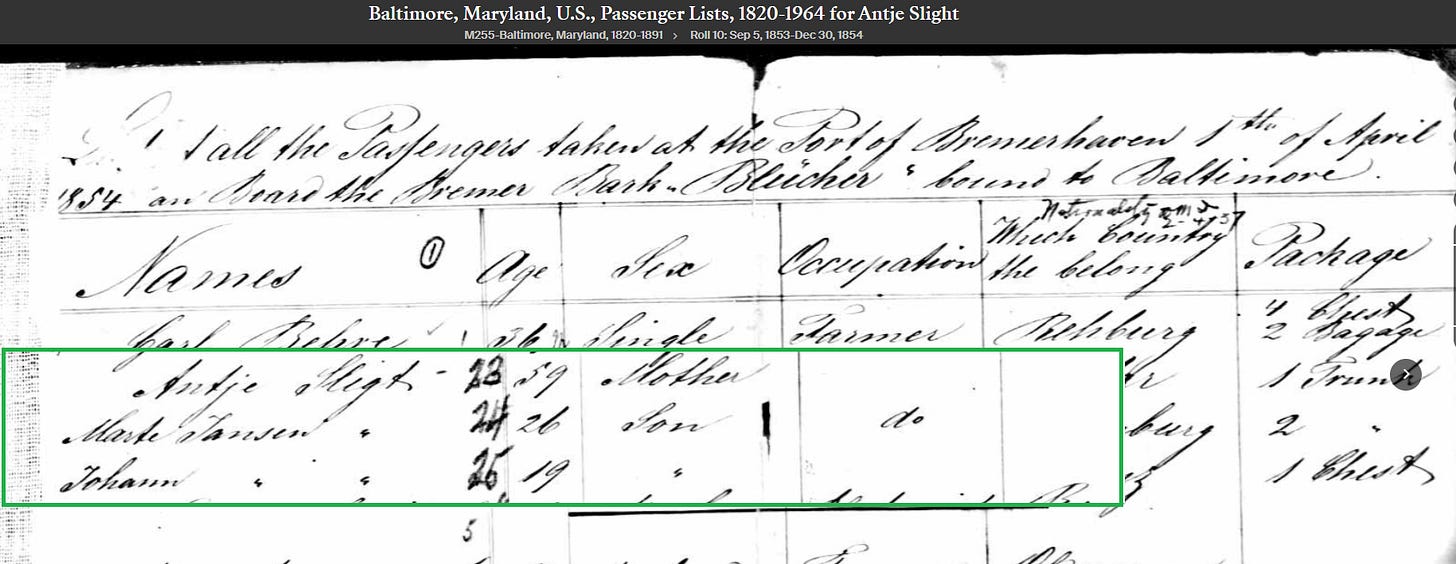 Baltimore, Maryland, U.S., Passenger Lists, 1820-1964 for Antje Slight
M255-Baltimore, Maryland, 1820-1891 > Roll 10: Sep 5, 1853-Dec 30, 1854
all the Passengers taken at the Port of Bremerhaven 1th of April
1854 an Board the Bremer Bark "Blücher" bound to Baltimore.
Names 1 Age Sex Occupation Which Country the belong Package
Carl Behre 36 Single Farmer Rehburg 4 Chest 2 Bagage
Antje Sligt 23 59 Mother 1 Trunk
Marte Jansen " 24 26 Son do burg 2 "
Johann " " 25 19 " 1 Chest
5